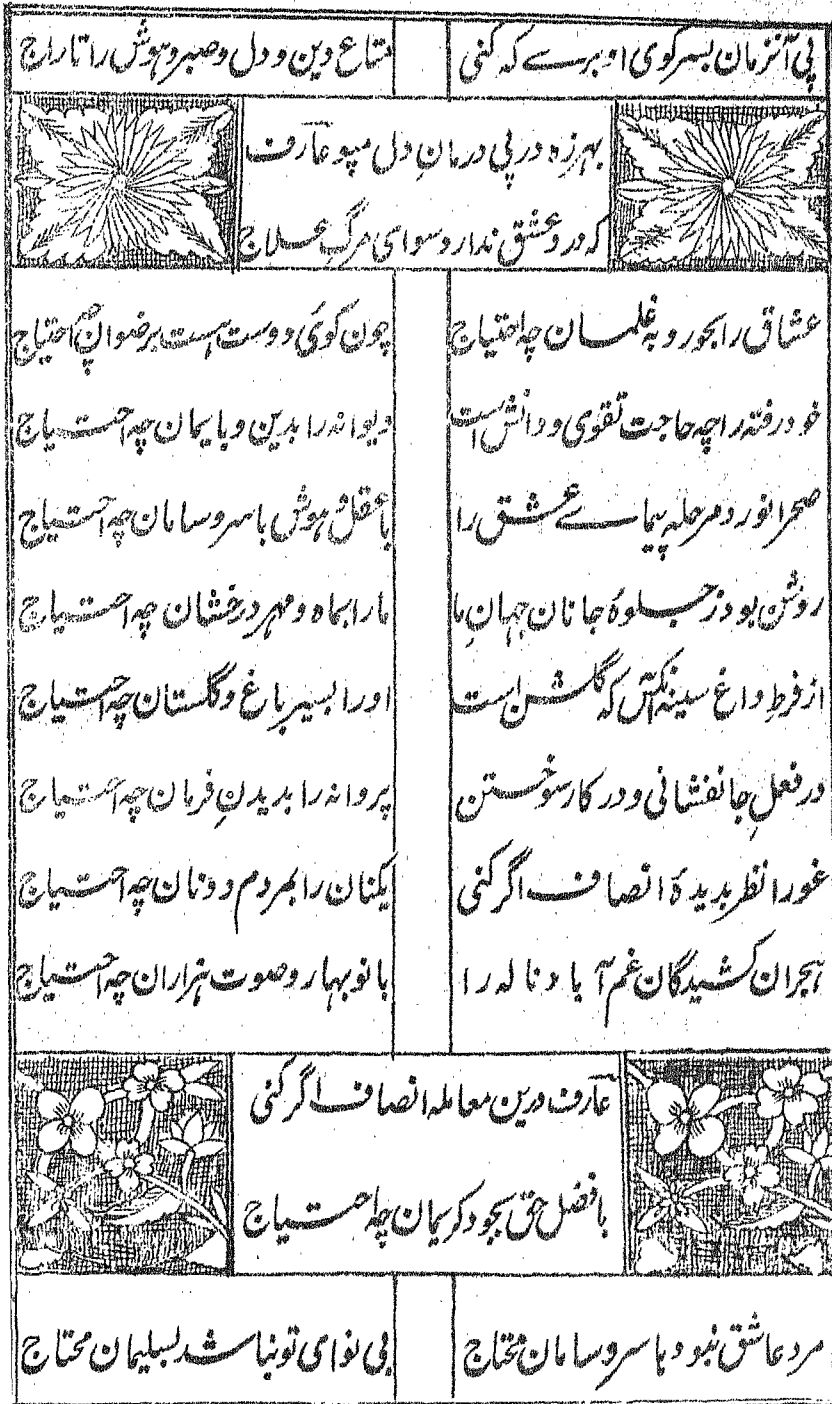 پی آنزمان بسر کوی او برے که کنی متاع دین و دل و صبر و هوش را تاراج
بهرزه در پی درمانِ دل مپو عارف
که درد عشق ندارد سوای مرگِ علاج
عشاق را بحور و به غلمان چه احتیاج چون کوی دوست هست برضوان چه احتیاج
خود رفته را چه حاجت تقوی و دانش است دیوانه را بدین و بایمان چه احتیاج
صحرا نورد مرحله پیمای عشق را با عقل و هوش با سر و سامان چه احتیاج
روشن بود ز جلوهٔ جانان جهانِ ما ما را بماه و مهر درخشان چه احتیاج
از فرطِ داغ سینه آنکس که گلشن است او را بسیر باغ و گلستان چه احتیاج
در فعلِ جانفشانی و در کار سوختن پروانه را بدیدنِ فرمان چه احتیاج
غور از نظر بدیدهٔ انصاف اگر کنی یکنان را بمردم دونان چه احتیاج
هجران کشیدگان غم آباد ناله را با نوبهار و صوت هزاران چه احتیاج
عارف درین معامله انصاف اگر کنی
با فضل حق بجود کریمان چه احتیاج
مرد عاشق نبود با سر و سامان محتاج بی نوای تو نباشد بسلیمان محتاج